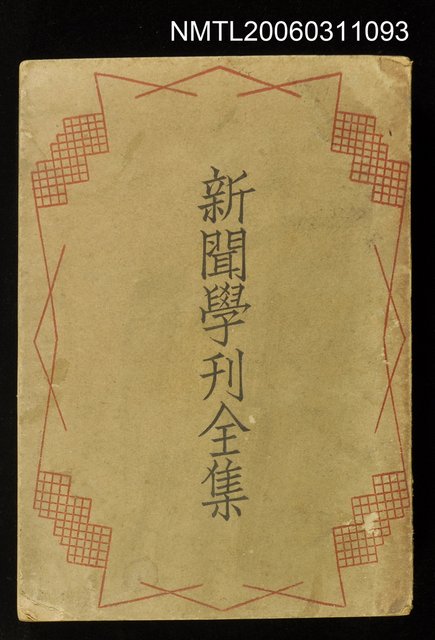 NMTL20060311093
新聞學刊全集